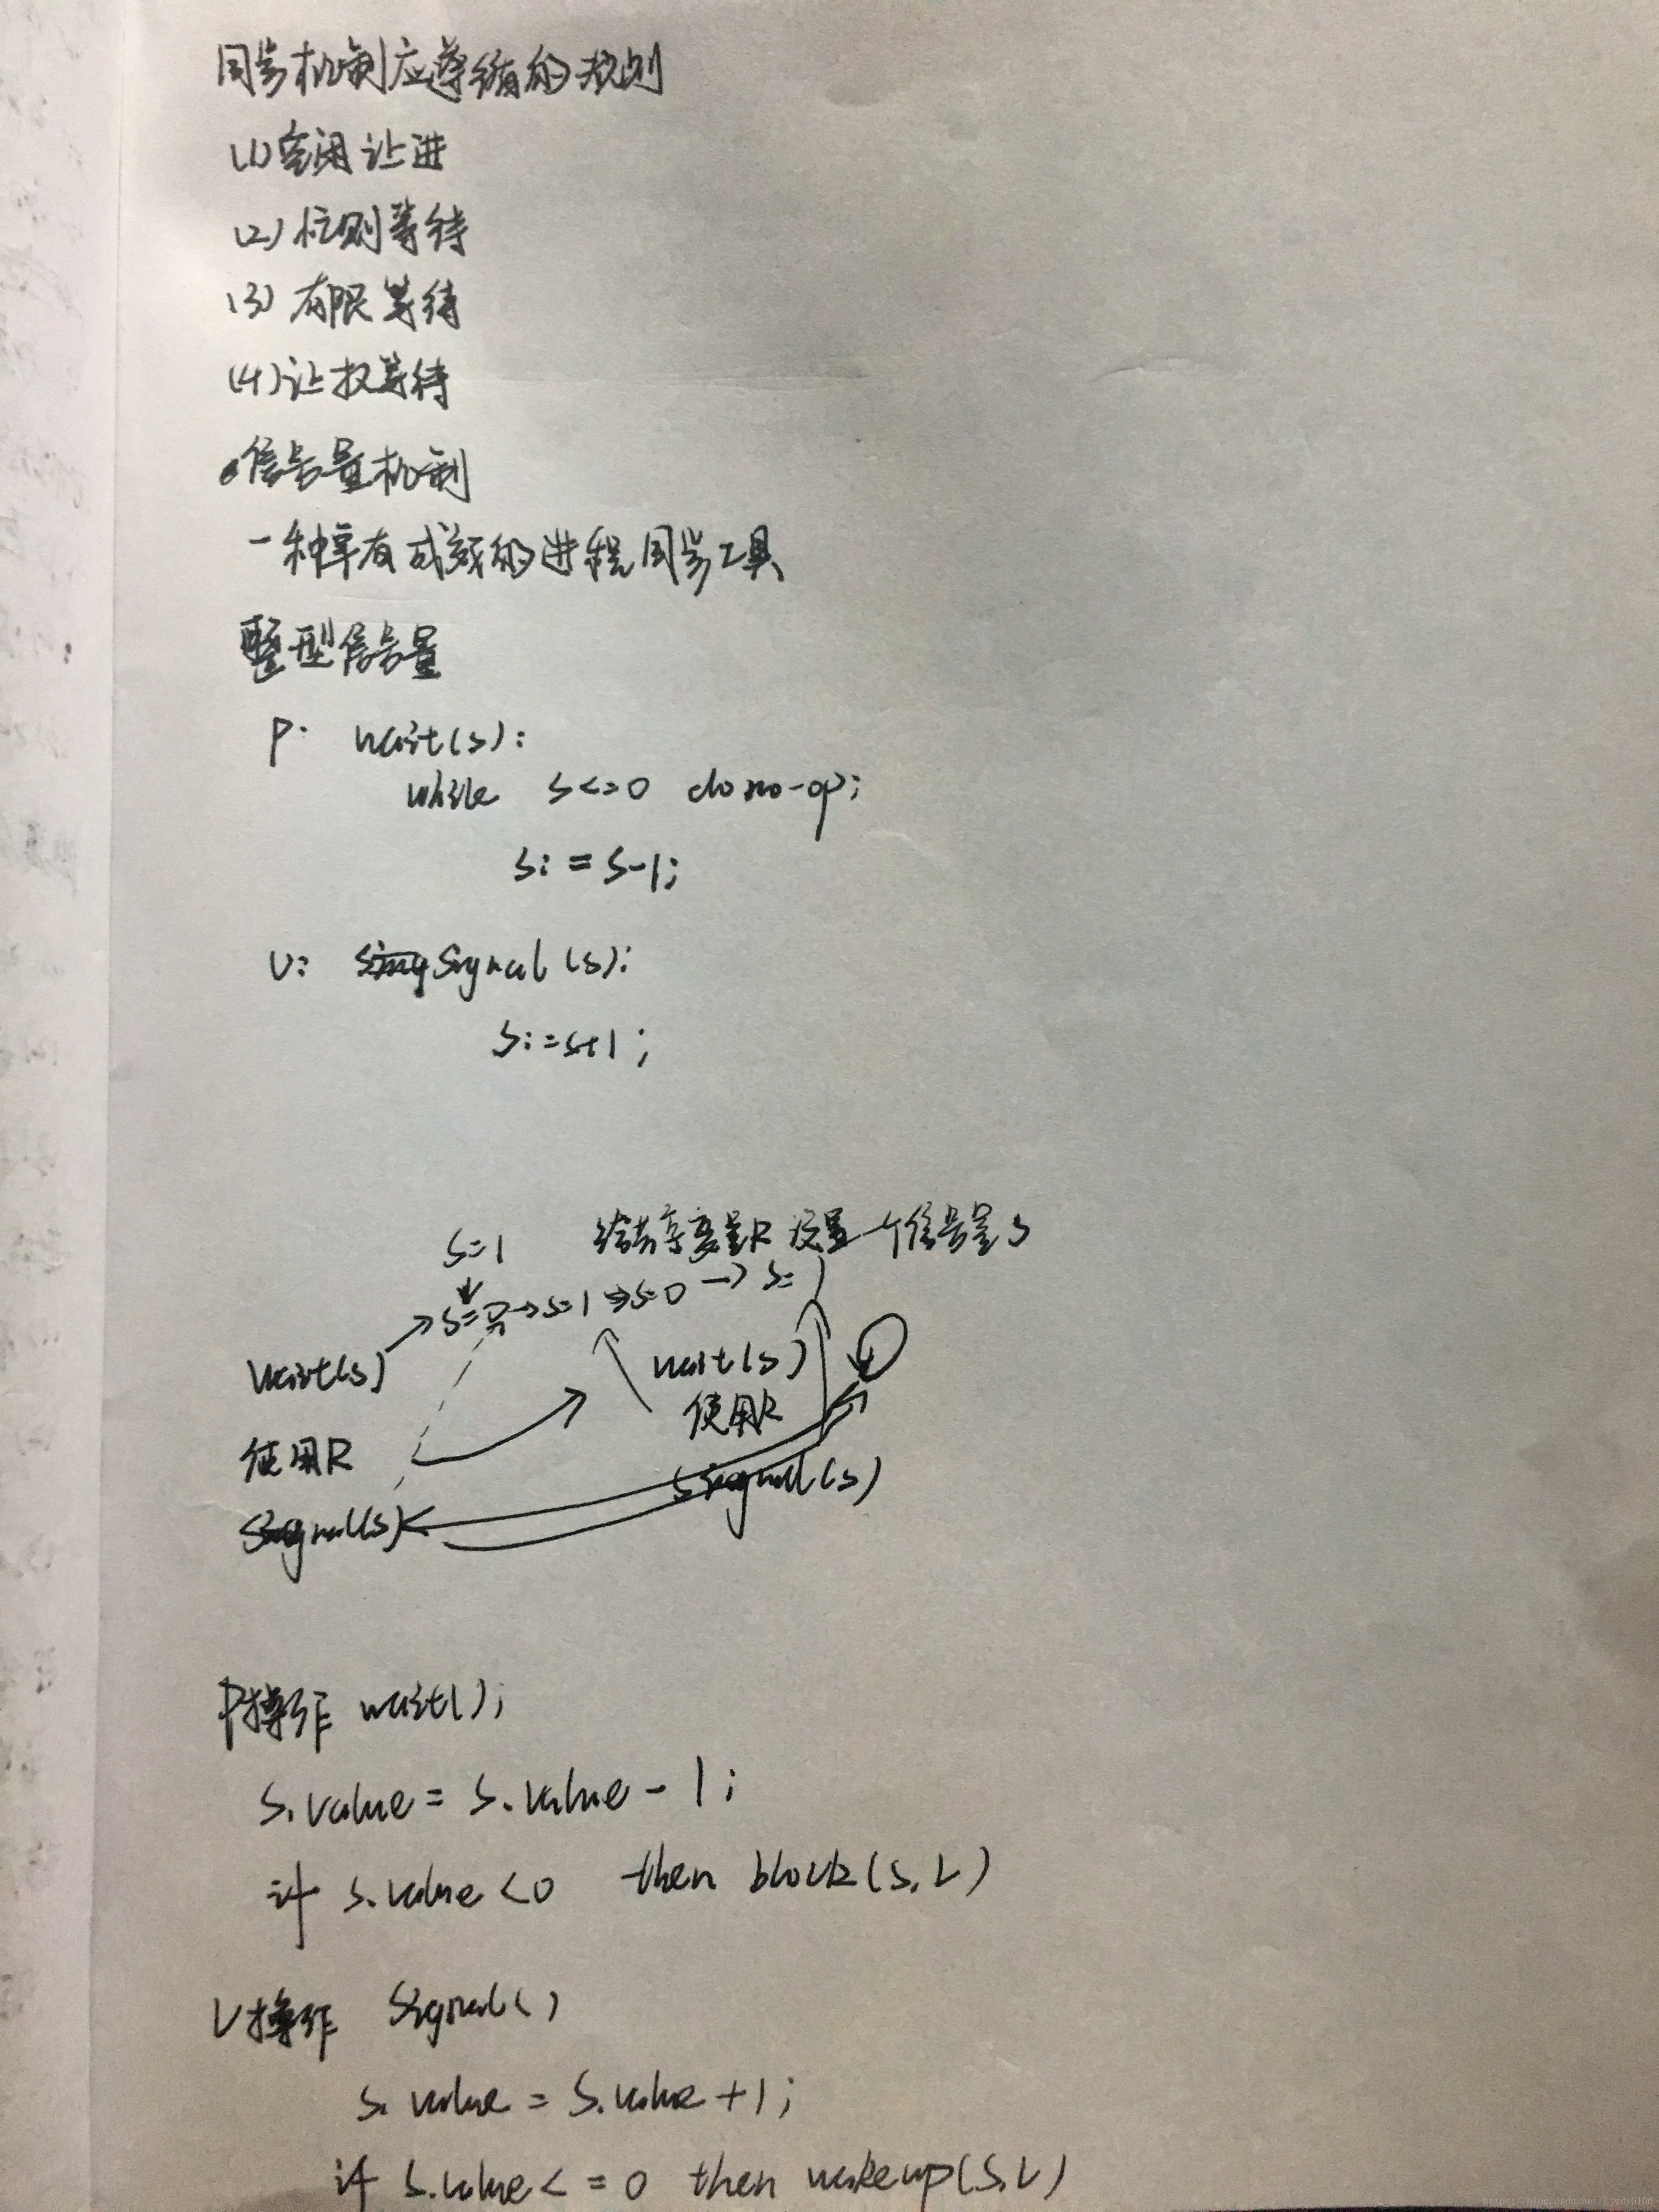 同步机制应遵循的规则
(1)空闲让进
(2)忙则等待
(3)有限等待
(4)让权等待
信号量机制
一种卓有成效的进程同步工具
整型信号量
P: wait(s):
while s<=0 do no-op;
s:=s-1;
V: signal(s):
s:=s+1;
s=1 给共享变量R设置一个信号量s
s=0→s=1→s=0→s=1
wait(s) wait(s)
使用R 使用R
signal(s) signal(s)
P操作 wait();
s.value=s.value-1;
if s.value<0 then block(s,L)
V操作 signal()
s.value=s.value+1;
if s.value<=0 then wakeup(s,L)